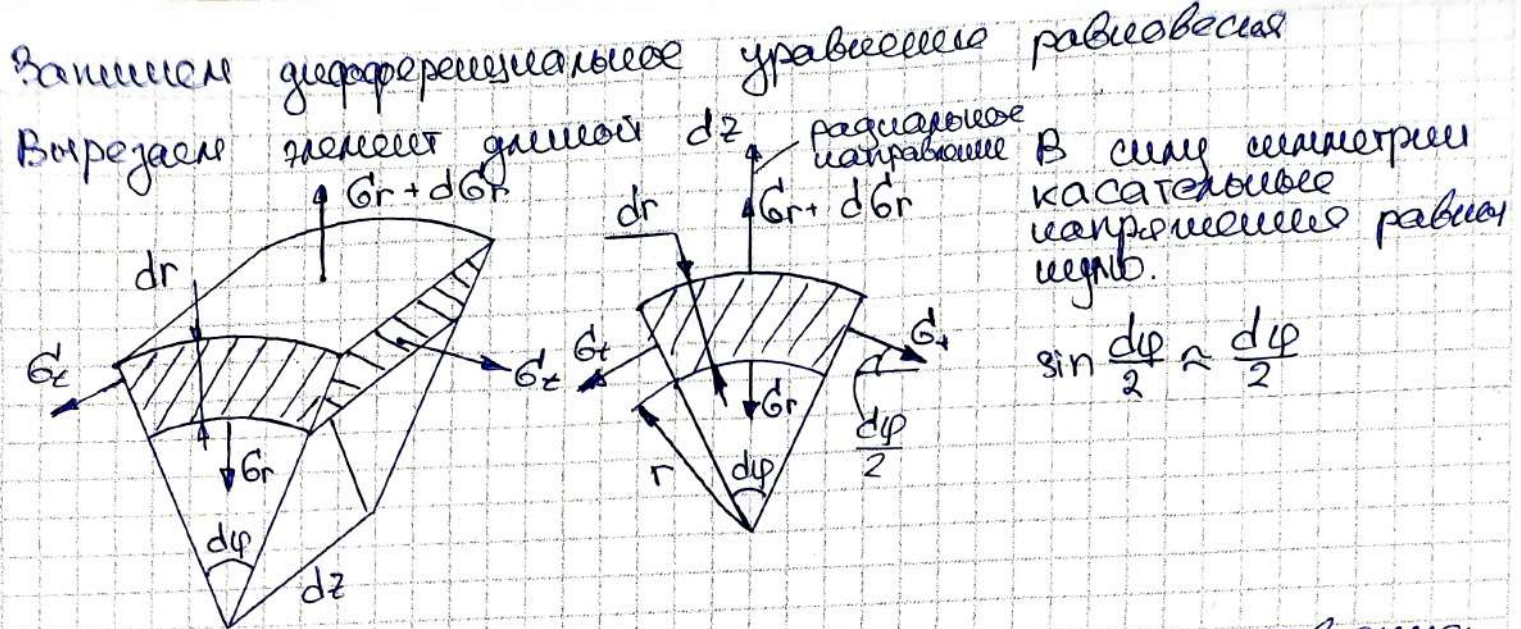 Запишем дифференциальное уравнение равновесия
Вырезаем элемент длиной dz
радиальное
направление
В силу симметрии
касательные
напряжения равны
нулю.
sin dφ/2 ≈ dφ/2
σr + dσr
dr
σt
σt
σr
dφ
dz
dr
σr + dσr
σt
σt
σr
dφ/2
r
dφ